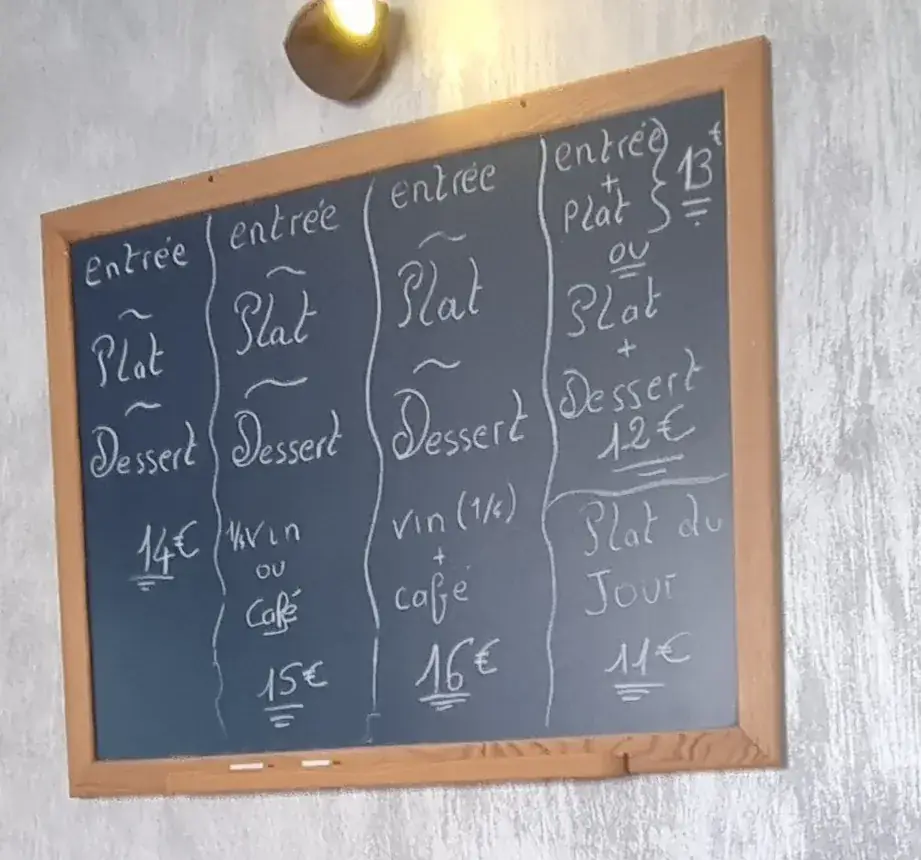 entrée
~
Plat
~
Dessert
14€
entrée
~
Plat
~
Dessert
1/4 vin
ou
Café
15€
entrée
~
Plat
~
Dessert
vin (1/4)
+
café
16€
entrée
+
Plat } 13€
ou
Plat
+
Dessert
12€
Plat du
Jour
11€